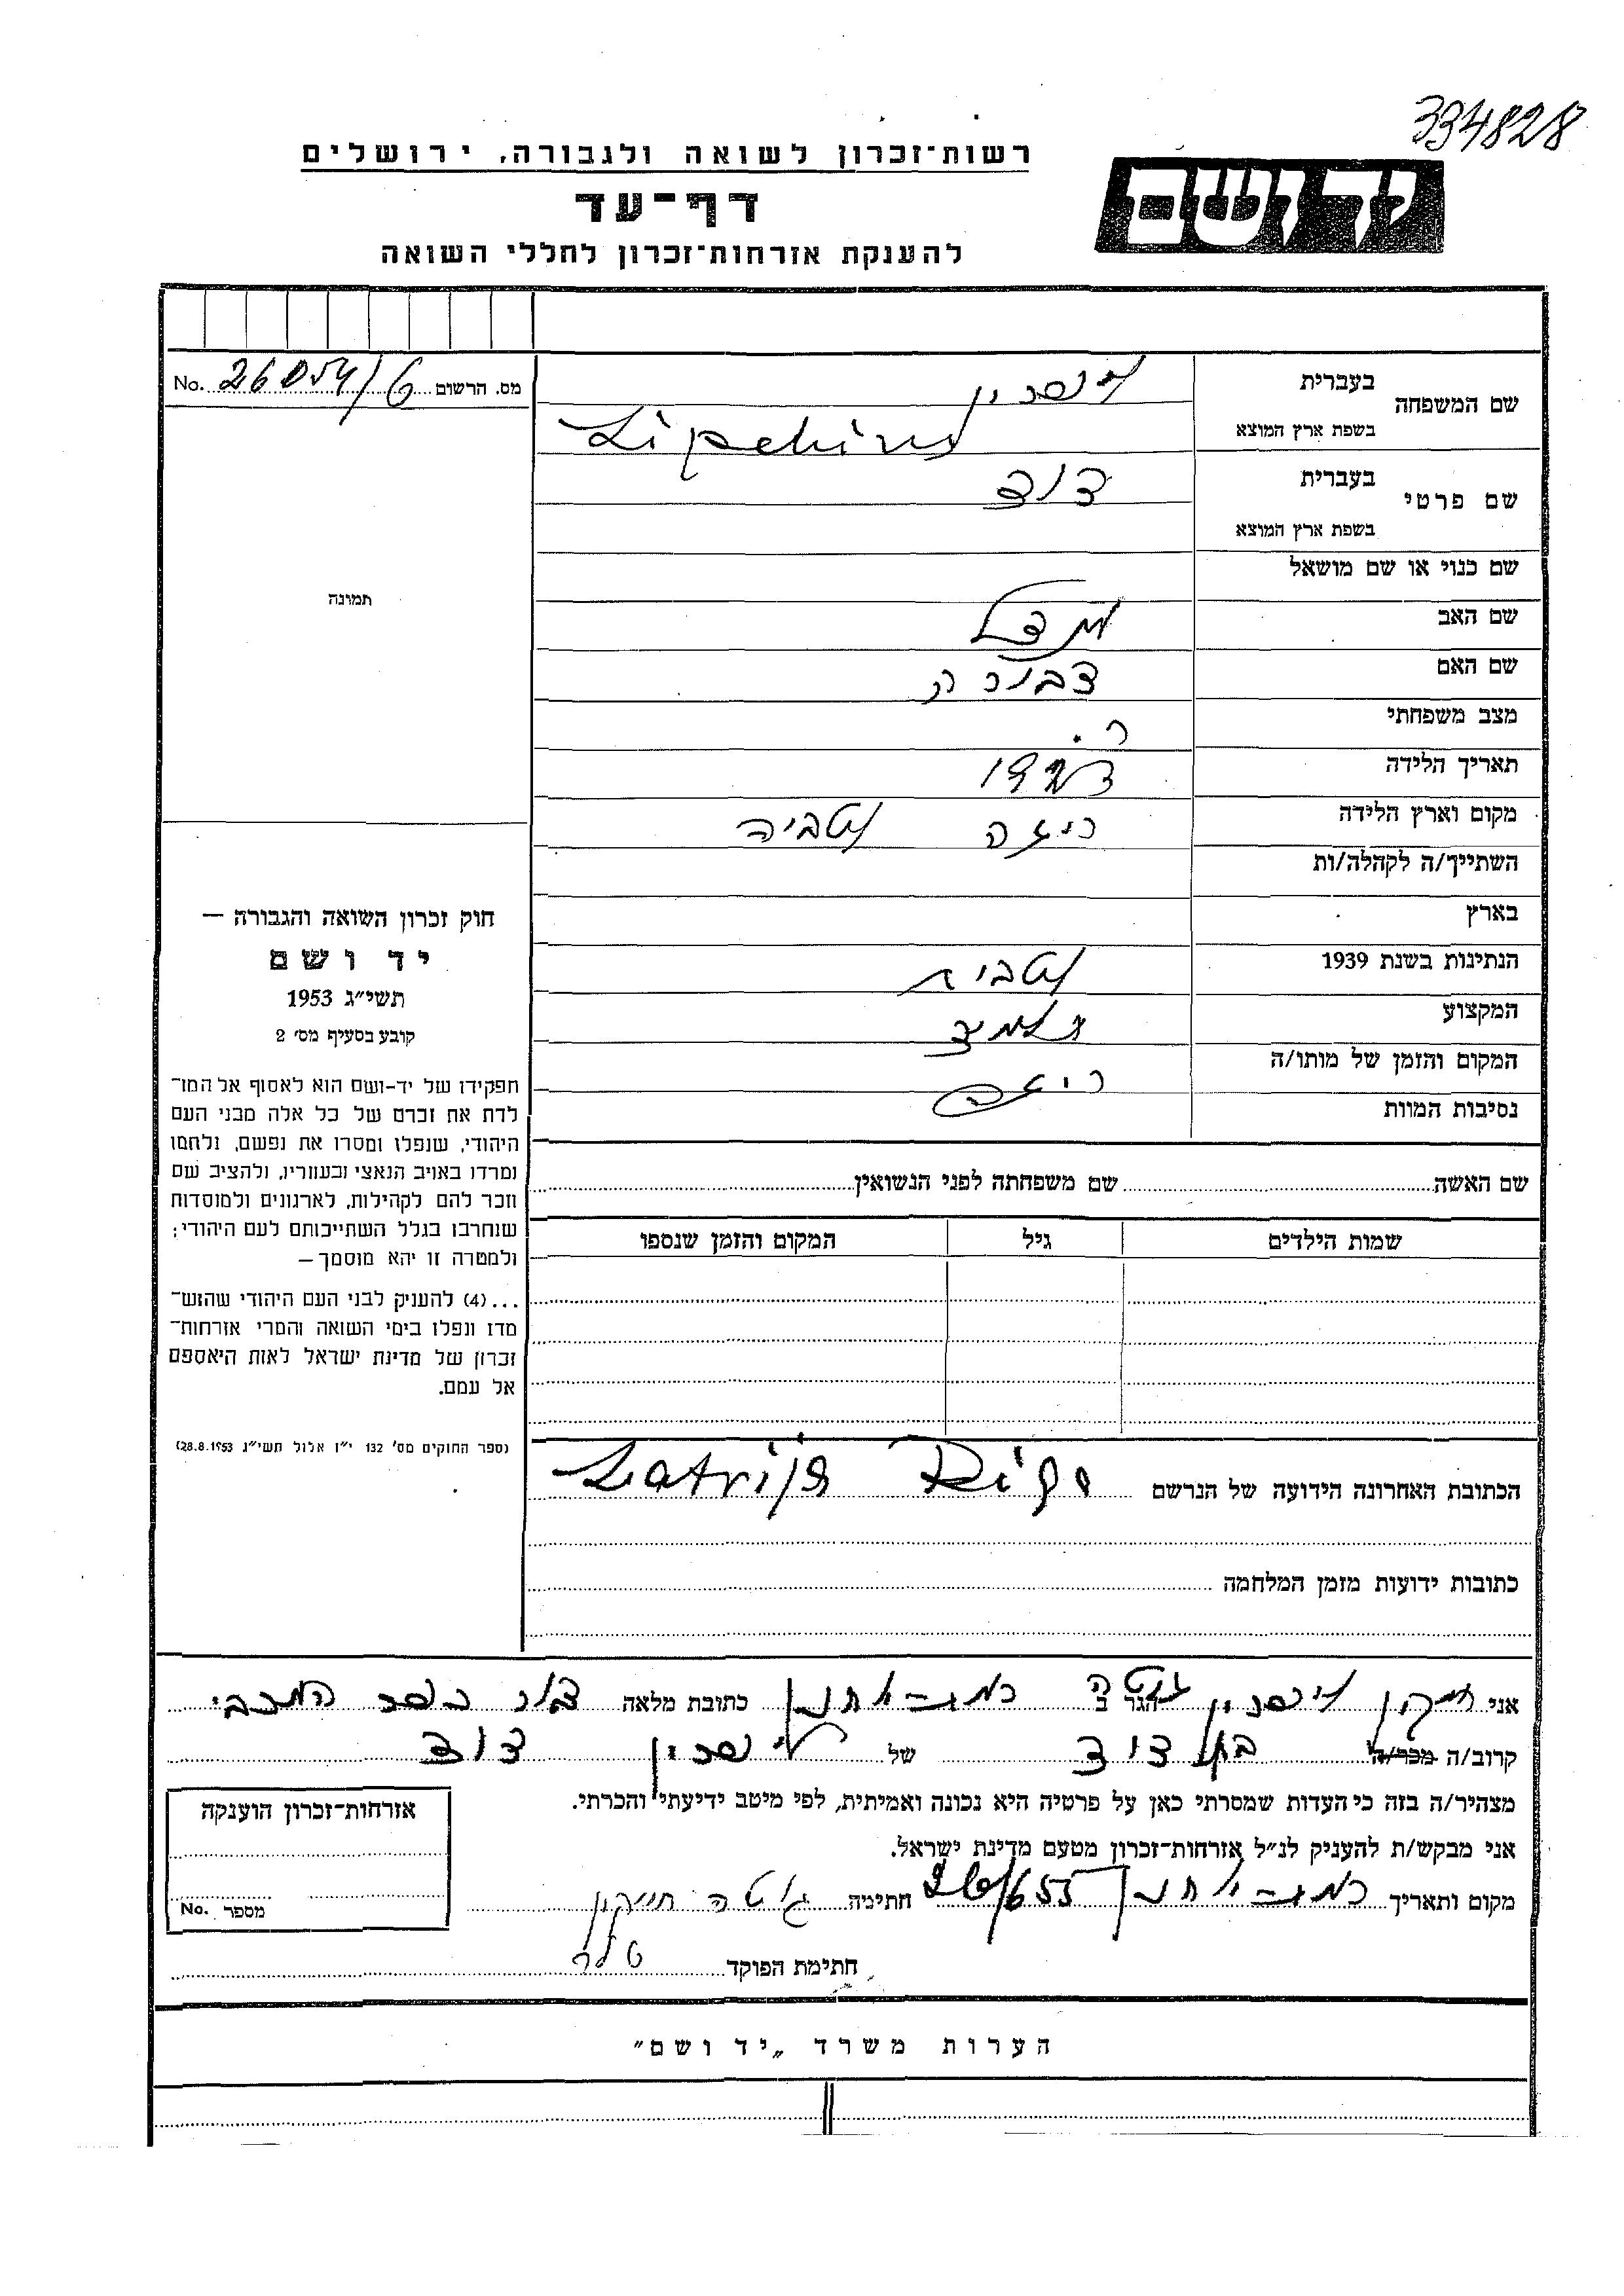 334828
יד ושם
רשות־זכרון לשואה ולגבורה, ירושלים
דף־עד
להענקת אזרחות־זכרון לחללי השואה
שם המשפחה
בעברית
בשפת ארץ המוצא
Lipchin
שם פרטי
בעברית דוד
בשפת ארץ המוצא
שם כנוי או שם מושאל
שם האב
שם האם דבורה
מצב משפחתי ר.
תאריך הלידה
מקום וארץ הלידה ריגה לטביה
השתייך/ה לקהלה/ות
בארץ
הנתינות בשנת 1939 לטבית
המקצוע תלמיד
המקום והזמן של מותו/ה ריגה
נסיבות המוות
מס. הרשום 26054/6 No.
תמונה
חוק זכרון השואה והגבורה —
יד ושם
תשי״ג 1953
קובע בסעיף מס׳ 2
תפקידו של יד-ושם הוא לאסוף אל המו־
לדת את זכרם של כל אלה מבני העם
היהודי, שנפלו ומסרו את נפשם, נלחמו
ומרדו באויב הנאצי ובעוזריו, ולהציב שם
וזכר להם לקהילות, לארגונים ולמוסדות
שנחרבו בגלל השתייכותם לעם היהודי;
ולמטרה זו יהא מוסמך —
...(4) להעניק לבני העם היהודי שהוש־
מדו ונפלו בימי השואה והמרי אזרחות־
זכרון של מדינת ישראל לאות היאספם
אל עמם.
(ספר החוקים מס׳ 132 י״ז אלול תשי״ג 28.8.1953)
שם האשה שם משפחתה לפני הנשואין
שמות הילדים גיל המקום והזמן שנספו
הכתובת האחרונה הידועה של הנרשם Riga Latvija
כתובות ידועות מזמן המלחמה
אני חייקין ליפכין גוטה הגר ב רמת-יוחנן כתובת מלאה דאר כפר המכבי
קרוב/ה מכר/ה בת דוד של ליפכין דוד
מצהיר/ה בזה כי העדות שמסרתי כאן על פרטיה היא נכונה ואמיתית, לפי מיטב ידיעתי והכרתי.
אני מבקש/ת להעניק לנ״ל אזרחות־זכרון מטעם מדינת ישראל.
מקום ותאריך רמת-יוחנן חתימה גוטה חייקין
חתימת הפוקד
אזרחות־זכרון הוענקה
מספר No.
הערות משרד „יד ושם״